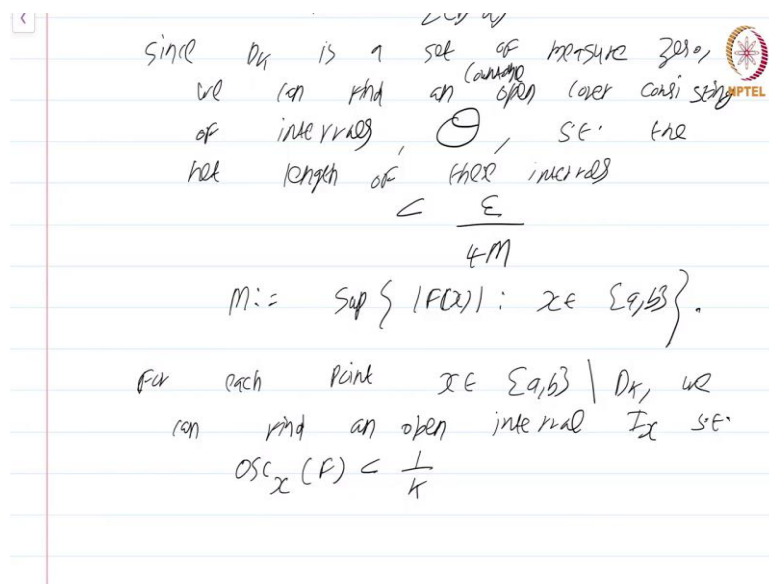 since Dk is a set of measure zero,
we can find an countable open cover consisting
of intervals, Θ, s.t. the
net length of these intervals
< ε
4M
M := Sup { |F(x)| : x ∈ [a,b] }.
For each Point x ∈ [a,b] \ Dk, we
can find an open interval Ix s.t.
OSCx (F) < 1/k
NPTEL